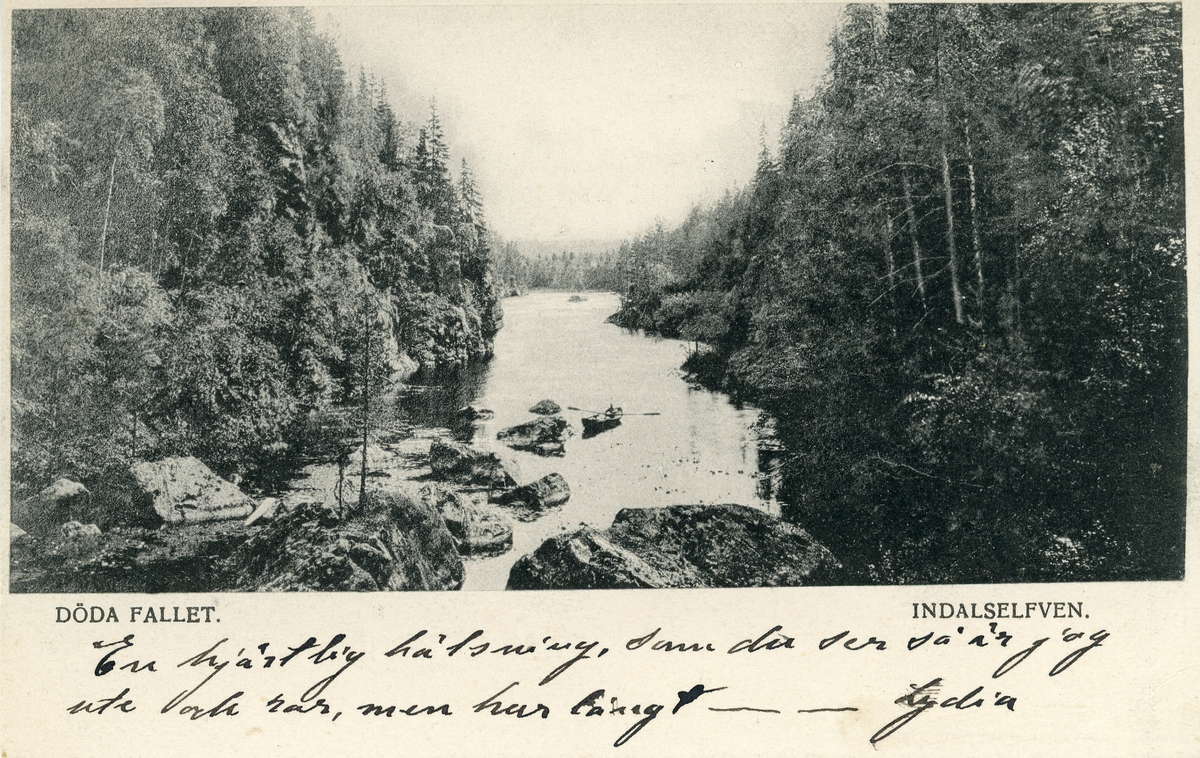 DÖDA FALLET. INDALSELFVEN.
En hjärtlig hälsning, som du ser så är jag
ute och rar, men hur långt — — — Lydia